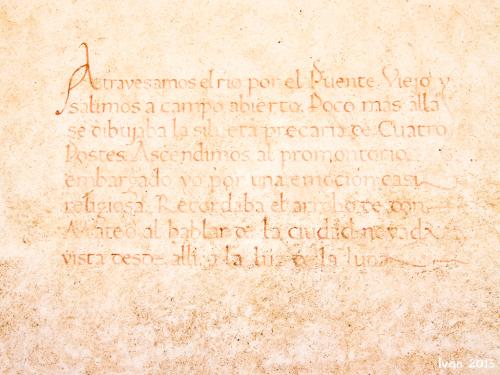 Atravesamos el rio por el Puente Viejo y
salimos a campo abierto. Poco más allá
se dibujaba la silueta precaria de Cuatro
Postes. Ascendimos al promontorio,
embargado yo por una emoción casi
religiosa. Recordaba el arrobo de don
Mateo al hablar de la ciudad nevada
vista desde allí, a la luz de la luna
Ivan 2013